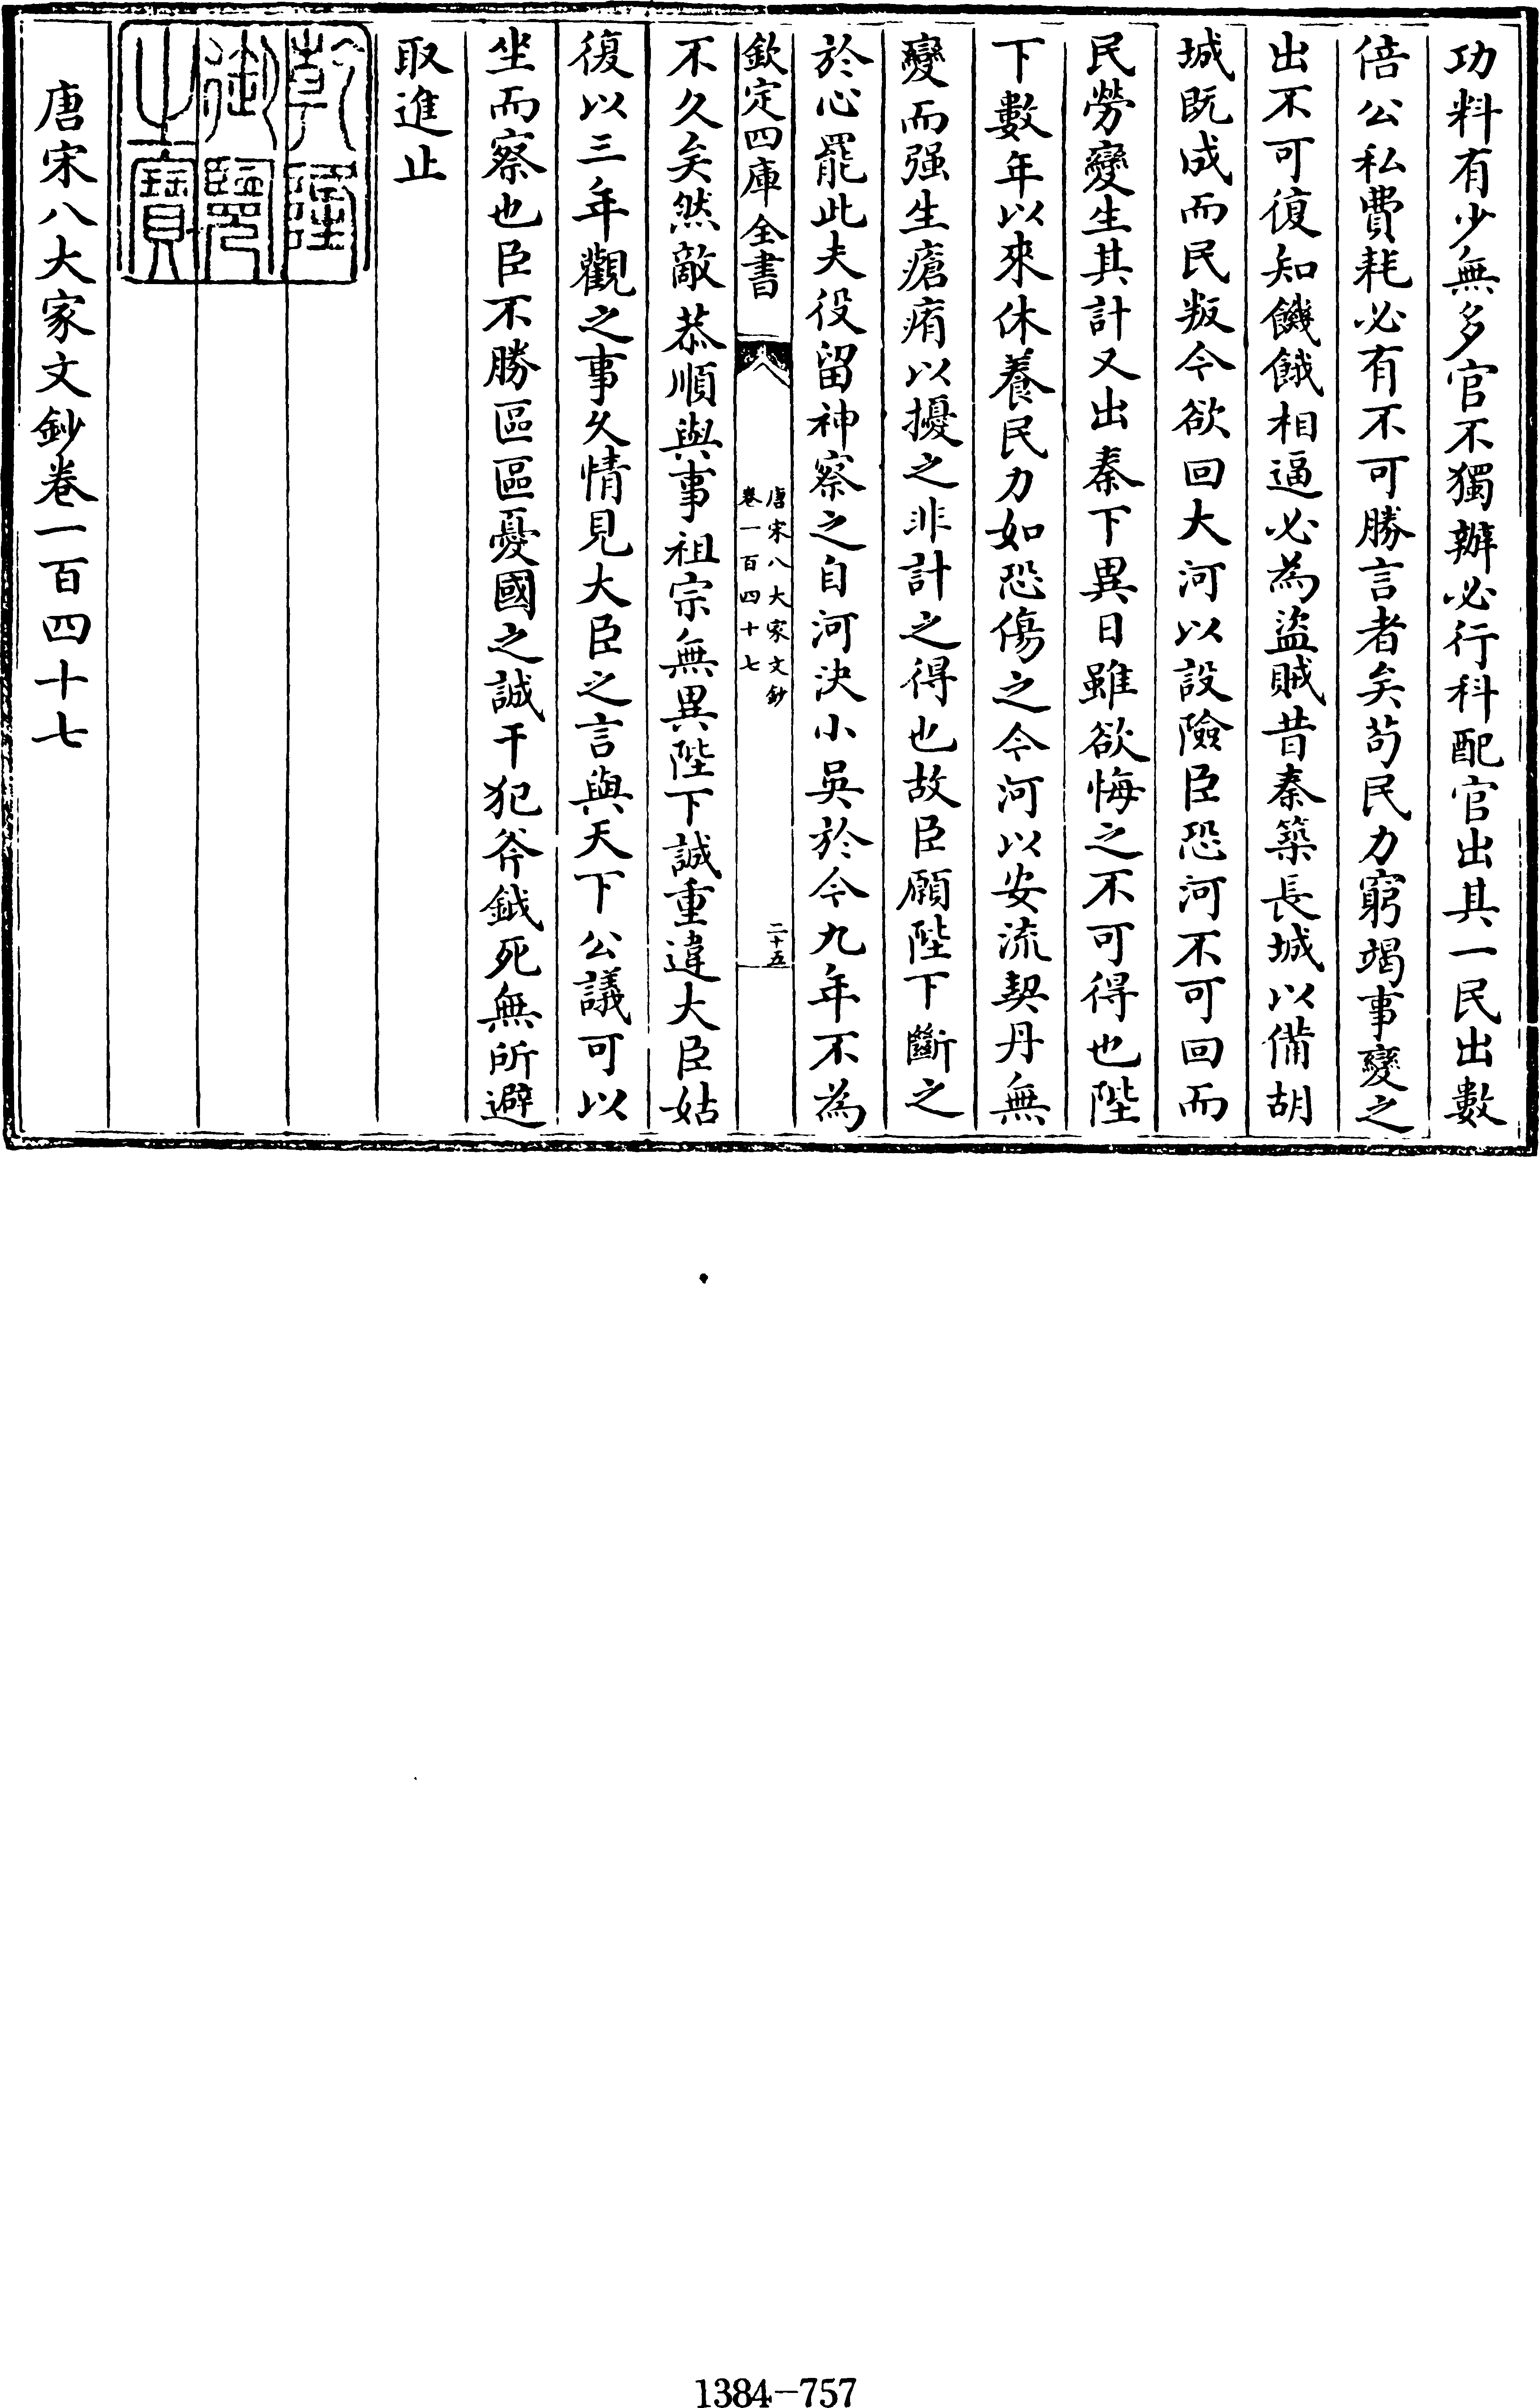 功料有少無多官不獨辦必行科配官出其一民出數
倍公私費耗必有不可勝言者矣苟民力窮竭事變之
出不可復知饑餓相逼必為盜賊昔秦築長城以備胡
城既成而民叛今欲回大河以設險臣恐河不可回而
民勞變生其計又出秦下異日雖欲悔之不可得也陛
下數年以來休養民力如恐傷之今河以安流契丹無
變而强生瘡痏以擾之非計之得也故臣願陛下斷之
於心罷此夫役留神察之自河決小吳於今九年不為
欽定四庫全書
唐宋八大家文鈔
卷一百四十七
二十五
不久矣然敵恭順與事祖宗無異陛下誠重違大臣姑
復以三年觀之事久情見大臣之言與天下公議可以
坐而察也臣不勝區區憂國之誠干犯斧鉞死無所避
取進止
乾隆
御覽
之寶
唐宋八大家文鈔卷一百四十七
1384-757